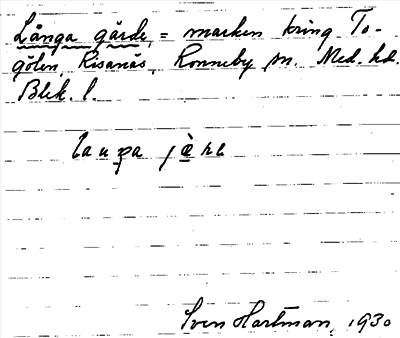 Långa gärde, = marken kring To-
gölen, Risanäs, Ronneby sn. Med. hd.
Blek. l.
Sven Hartman, 1930